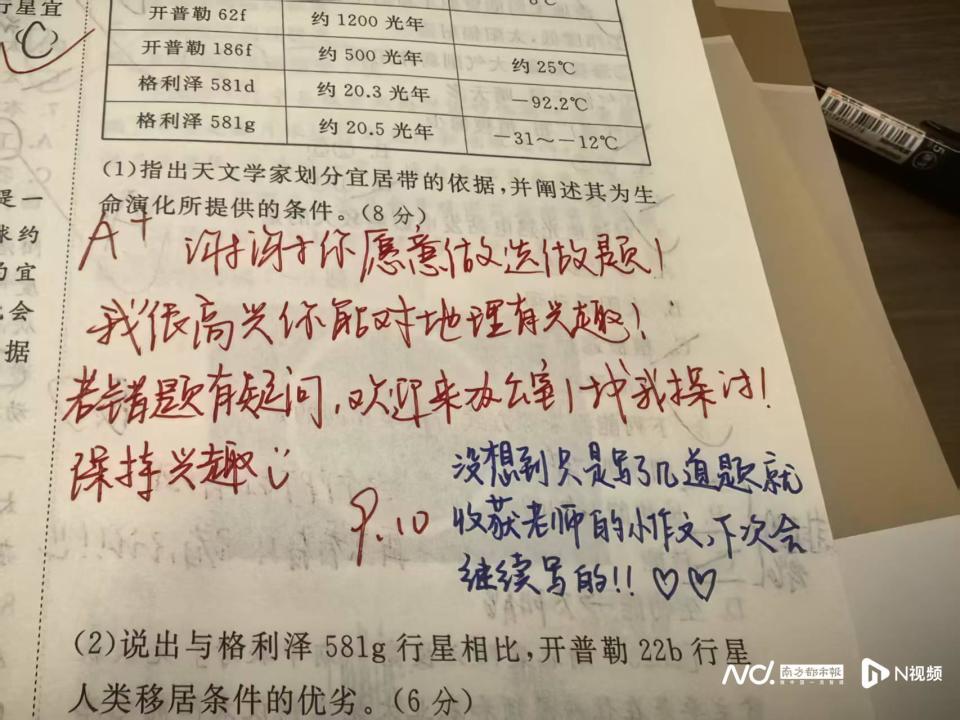 行星宜
C
是一
球约
为宜
会
据
0℃
开普勒 62f 约 1200 光年
开普勒 186f 约 500 光年 约 25℃
格利泽 581d 约 20.3 光年 －92.2℃
格利泽 581g 约 20.5 光年 －31～－12℃
(1)指出天文学家划分宜居带的依据,并阐述其为生
命演化所提供的条件。(8 分)
A+ 谢谢你愿意做选做题!
我很高兴你能对地理有兴趣!
若错题有疑问,欢迎来办公室1找我探讨!
保持兴趣
9.10
没想到只是写了几道题就
收获老师的小作文,下次会
继续写的!! ♡♡
(2)说出与格利泽 581g 行星相比,开普勒 22b 行星
人类移居条件的优劣。(6 分)
ND. 南方都市报
N视频